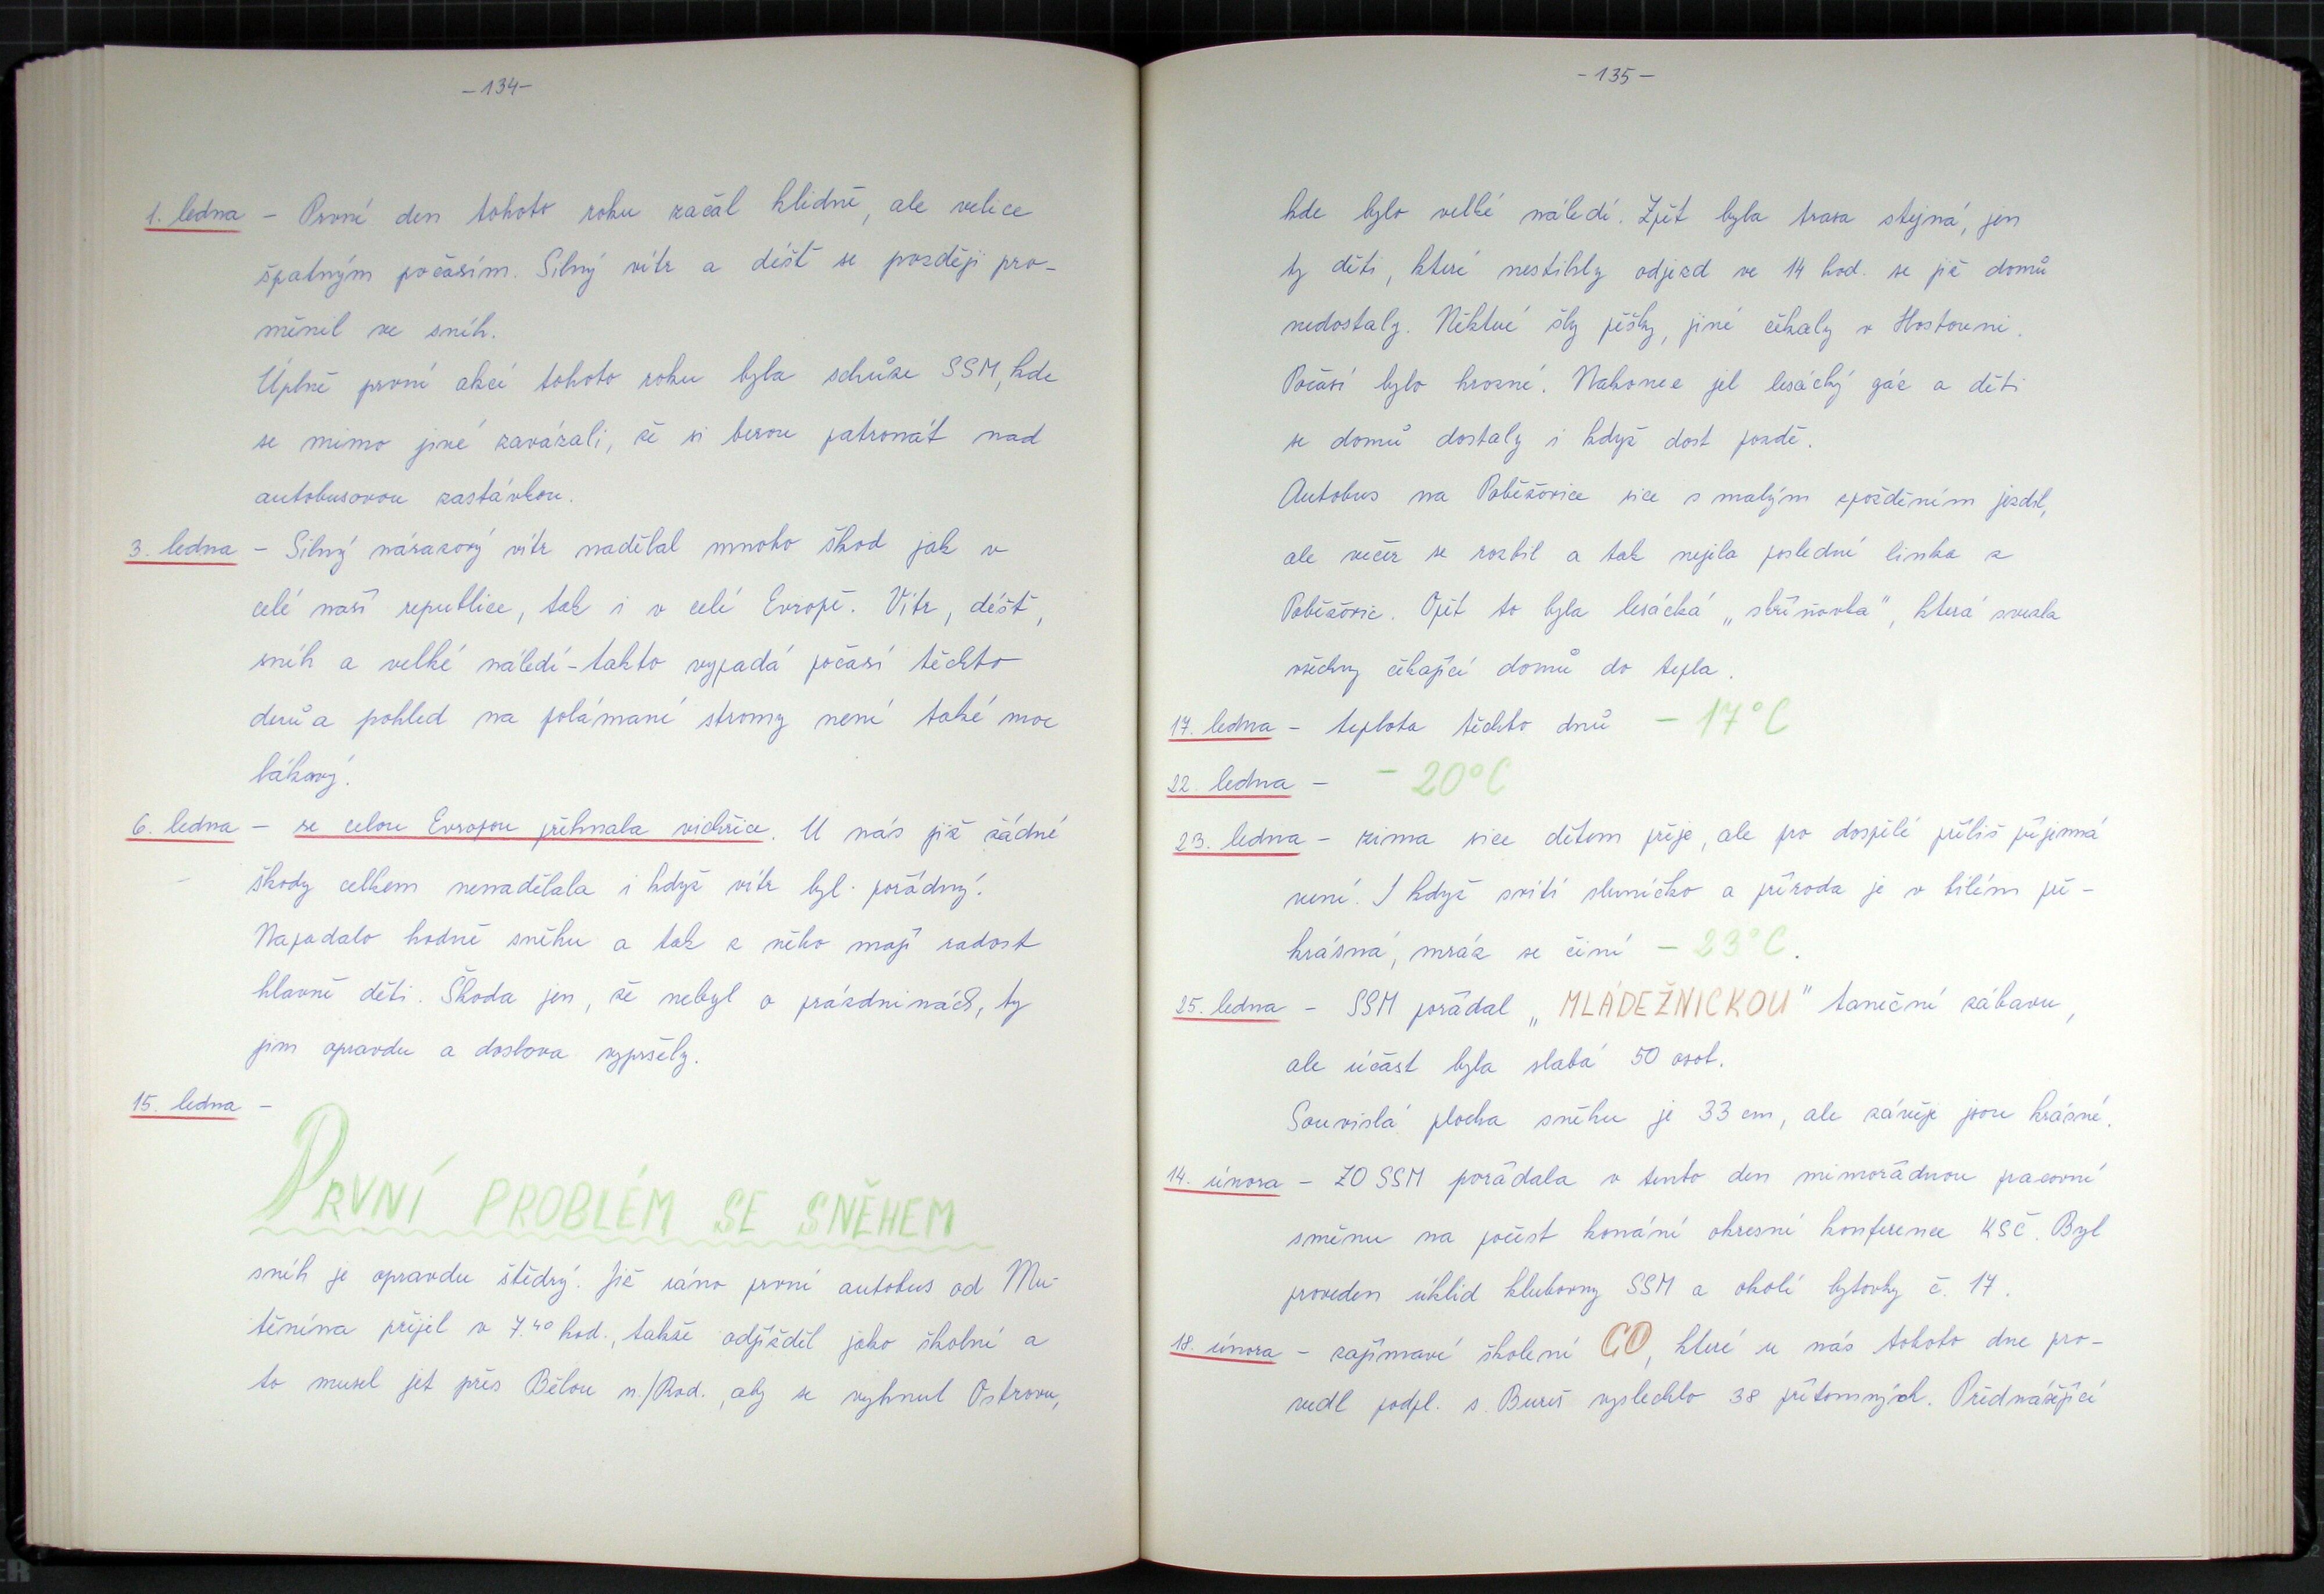 -134-
1. ledna - První den tohoto roku začal klidně, ale velice
špatným počasím. Silný vítr a déšť se později pro-
měnil ve sníh.
Úplně první akcí tohoto roku byla schůze SSM, kde
se mimo jiné zavázali, že si berou patronát nad
autobusovou zastávkou.
3. ledna - Silný nárazový vítr nadělal mnoho škod jak v
celé naší republice, tak i v celé Evropě. Vítr, déšť,
sníh a velké náledí - takto vypadá počasí těchto
dnů a pohled na polámané stromy není také moc
lákavý.
6. ledna - se celou Evropou přehnala vichřice. U nás již žádné
škody celkem nenadělala i když vítr byl pořádný.
Napadalo hodně sněhu a tak z něho mají radost
hlavně děti. Škoda jen, že nebyl o prázdninách, ty
jim opravdu a doslova vypršely.
15. ledna -
PRVNÍ PROBLÉM SE SNĚHEM
sníh je opravdu štědrý. Již ráno první autobus od Mu-
těnína přijel v 7.40 hod., takže odjížděl jako školní a
to musel jet přes Bělou n./Rad., aby se vyhnul Ostrovu,
-135-
kde bylo velké náledí. Zpět byla trasa stejná, jen
ty děti, které nestihly odjezd ve 14 hod. se již domů
nedostaly. Některé šly pěšky, jiné čekaly v Hostouni.
Počasí bylo hrozné. Nakonec jel lesácký gáz a děti
se domů dostaly i když dost pozdě.
Autobus na Poběžovice sice s malým zpožděním jezdil,
ale večer se rozbil a tak nejela poslední linka z
Poběžovic. Opět to byla lesácká „skříňovka", která svezla
všechny čekající domů do tepla.
17. ledna - teplota těchto dnů - 17°C
22. ledna - - 20°C
23. ledna - zima sice dětem přeje, ale pro dospělé příliš příjemná
není. I když svítí sluníčko a příroda je v bílém pře-
krásná, mráz se činí - 23°C.
25. ledna - SSM pořádal „MLÁDEŽNICKOU" taneční zábavu,
ale účast byla slabá 50 osob.
Souvislá plocha sněhu je 33 cm, ale závěje jsou krásné.
14. února - ZO SSM pořádala v tento den mimořádnou pracovní
směnu na počest konání okresní konference KSČ. Byl
proveden úklid klubovny SSM a okolí bytovky č. 17.
18. února - zajímavé školení CO, které u nás tohoto dne pro-
vedl podpl. s. Bureš vyslechlo 38 přítomných. Přednášející